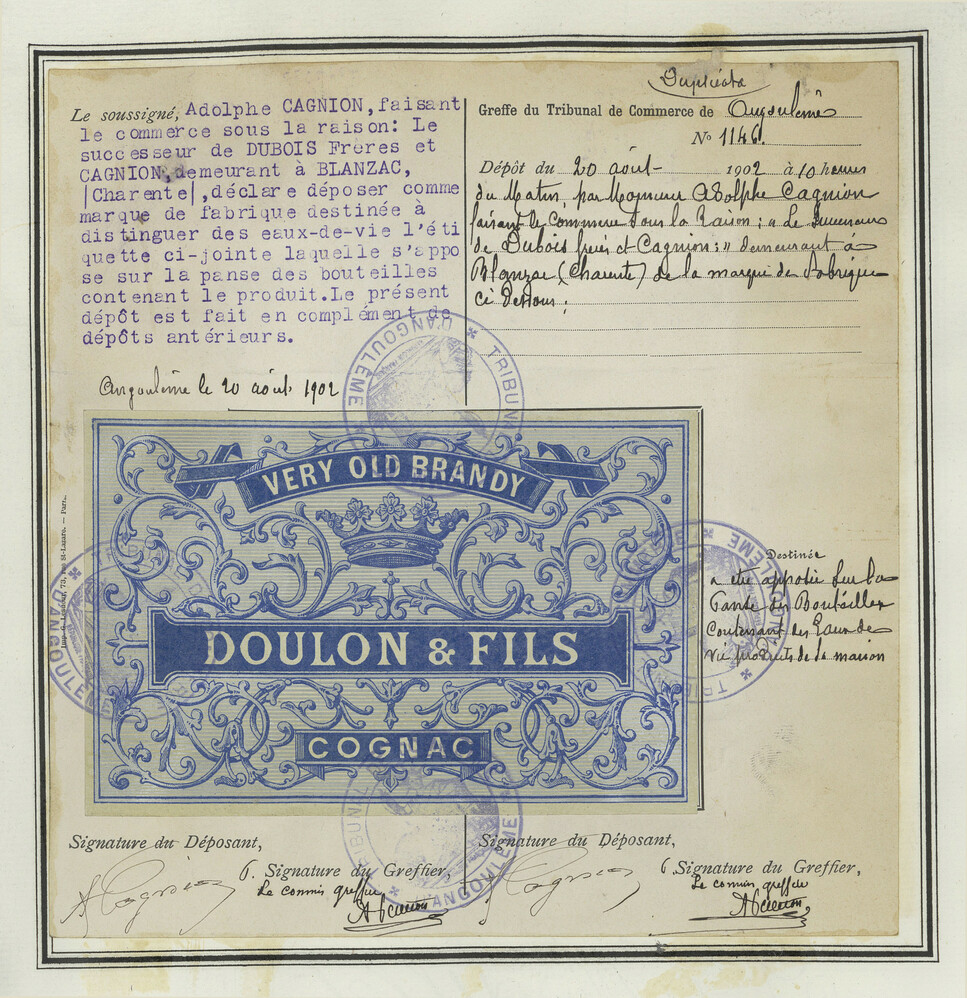 Duplicata
Le soussigné, Adolphe CAGNION, faisant
le commerce sous la raison: Le
successeur de DUBOIS Frères et
CAGNION, demeurant à BLANZAC,
|Charente|, déclare déposer comme
marque de fabrique destinée à
distinguer des eaux-de-vie l'éti
quette ci-jointe laquelle s'appo
se sur la panse des bouteilles
contenant le produit. Le présent
dépôt est fait en complément de
dépôts antérieurs.
Angoulême le 20 août 1902
Greffe du Tribunal de Commerce de Angoulême
No 1146.
Dépôt du 20 août 1902 à 10 heures
du Matin, par Monsieur Adolphe Cagnion
faisant le Commerce sous la Raison; "Le Successeur
de Dubois frères et Cagnion;" demeurant à
Blanzac (Charente) de la marque de Fabrique
ci dessous;
VERY OLD BRANDY
DOULON & FILS
COGNAC
Destinée
a être apposée sur la
Panse des Bouteilles
Contenant des Eaux de
vie produits de sa maison
73, rue St-Lazare. — Paris.
TRIBUNAL D'ANGOULÊME
TRIBUNAL D'ANGOULÊME
TRIBUNAL D'ANGOULÊME
TRIBUNAL D'ANGOULÊME
Signature du Déposant,
A Cagnion
6. Signature du Greffier,
Le commis greffier
Signature du Déposant,
A Cagnion
6 Signature du Greffier,
Le commis greffier